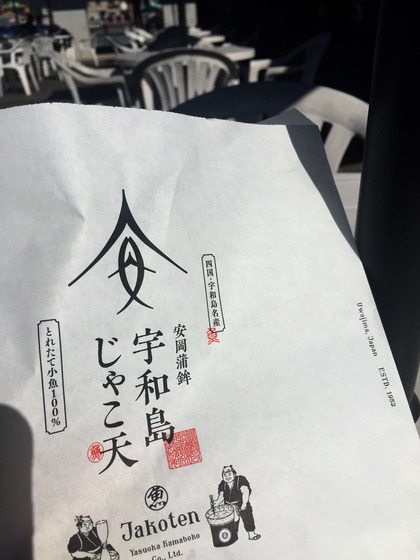 四国・宇和島名産
安岡蒲鉾
宇和島
じゃこ天
とれたて小魚100%
Uwajima, Japan ESTD. 1952
魚
Jakoten
Yasuoka Kamaboko
Co., Ltd.